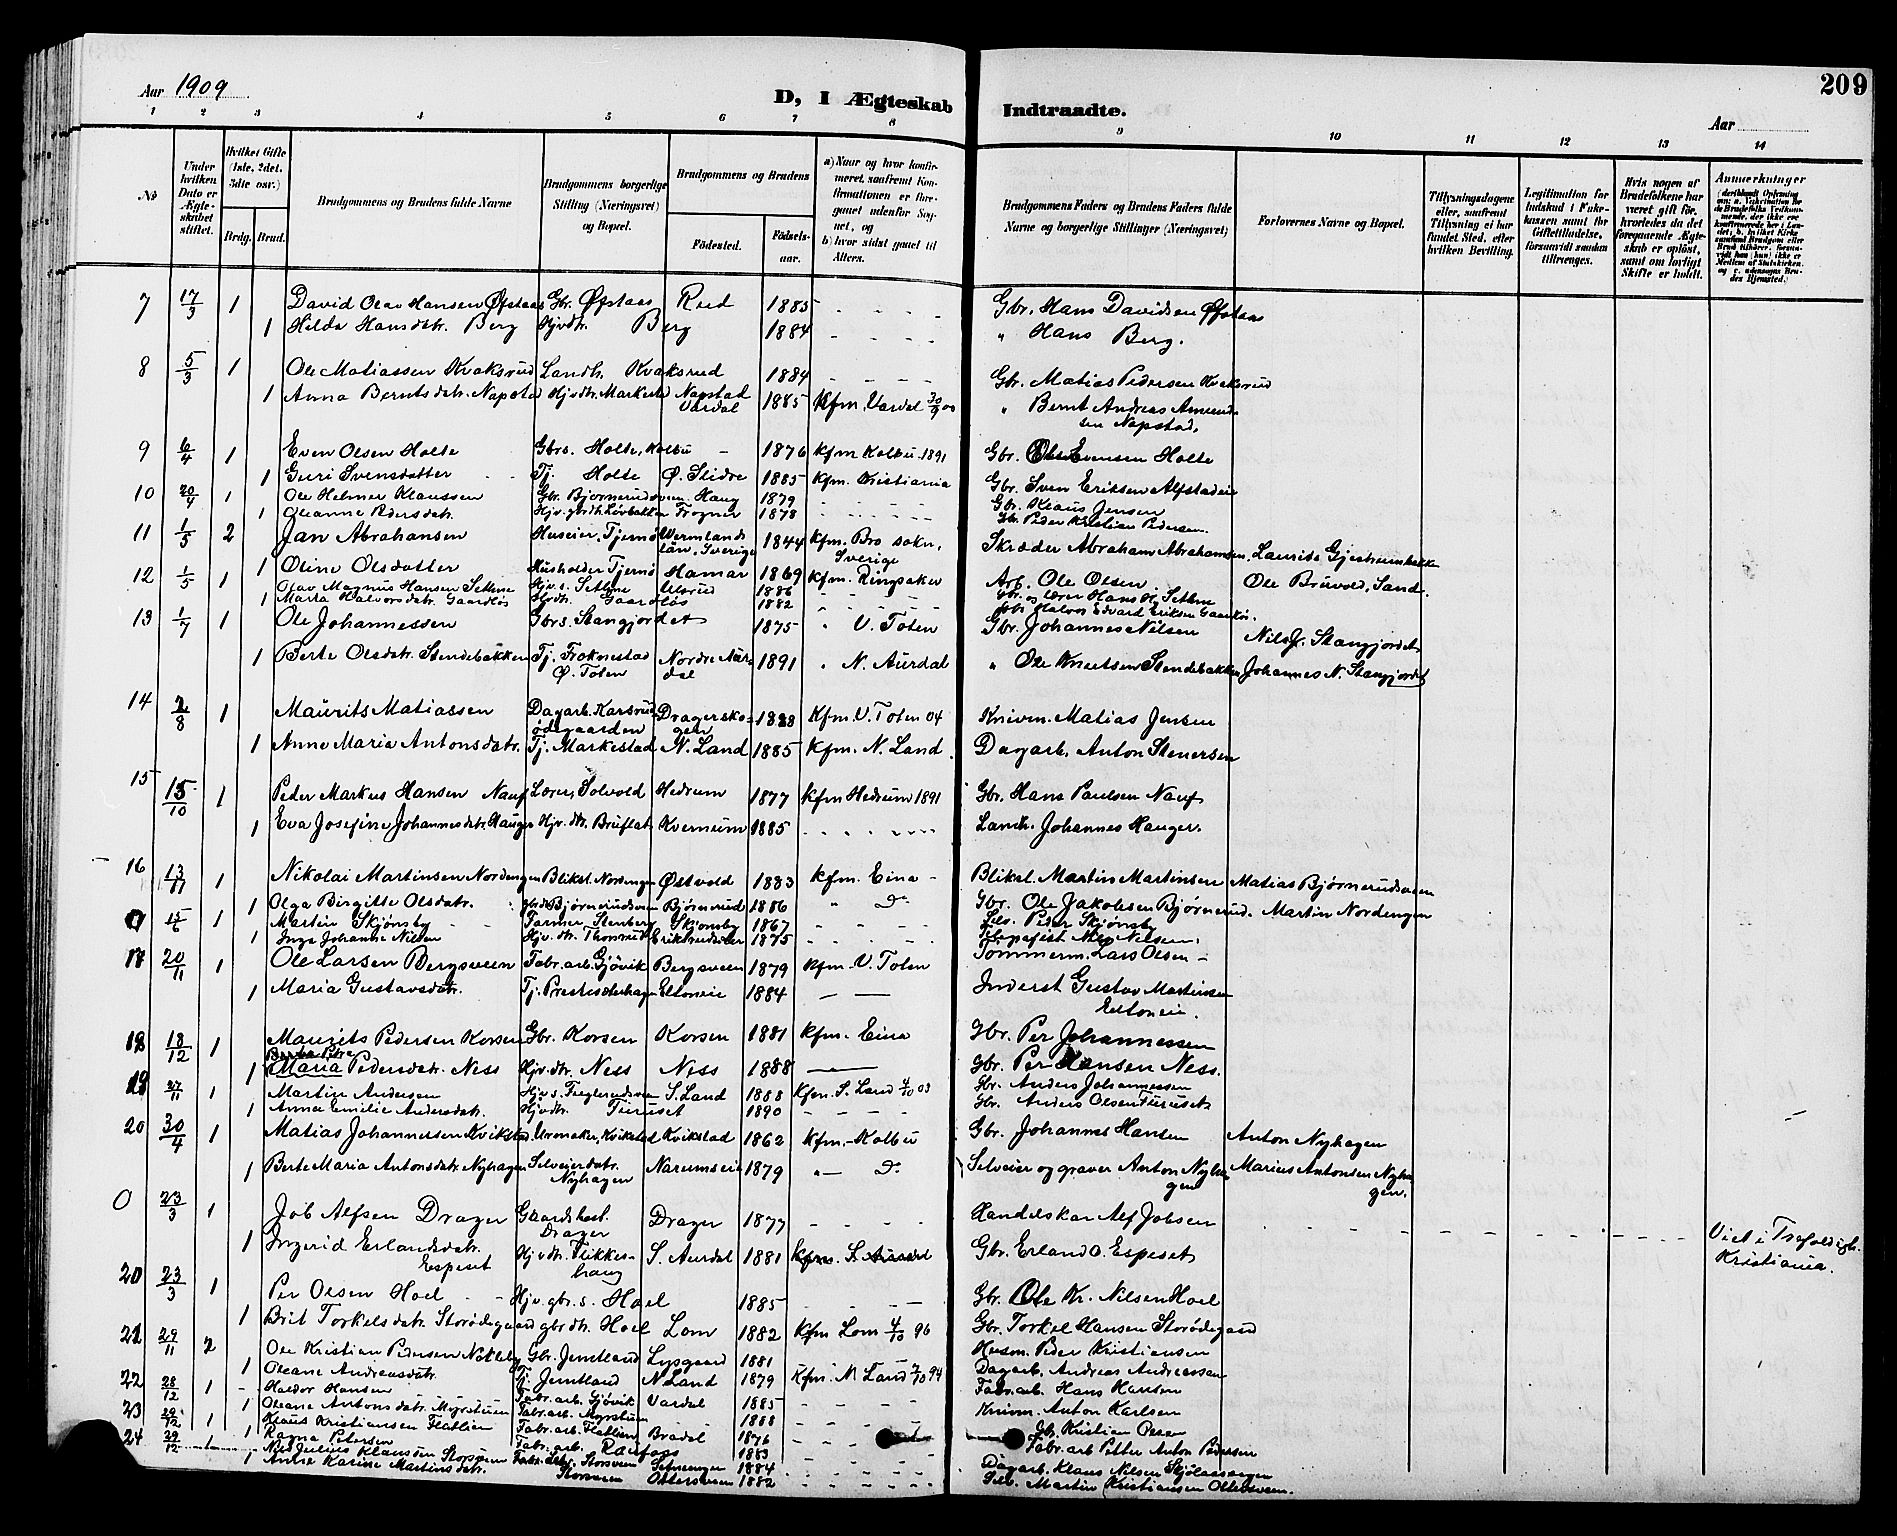 Aar 1909
D, I Ægteskab Indtraadte.
Aar
209
1 2 3 4 5 6 7 8 9 10 11 12 13 14
No
Under hvilken Dato er Ægteskabet stiftet.
Hvilket Gifte (1ste, 2det, 3die osv.)
Brdg. Brud.
Brudgommens og Brudens fulde Navne
Brudgommens borgerlige Stilling (Næringsvei) og Bopæl.
Brudgommens og Brudens
Fødested. Fødselsaar.
a) Naar og hvor konfirmeret, saafremt Konfirmationen er foregaaet udenfor Sognet, og
b) hvor sidst gaaet til Alters.
Brudgommens Faders og Brudens Faders fulde Navne og borgerlige Stillinger (Næringsvei)
Forlovernes Navne og Bopæl.
Tillysningsdagene eller, saafremt Tillysning ei har fundet Sted, efter hvilken Bevilling.
Legitimation for Indskud i Enkekassen samt for Giftetilladelse, forsaavidt saadan tiltrænges.
Hvis nogen af Brudefolkene har været gift før, hvorledes da det foregaaende Ægteskab er opløst, samt om lovligt Skifte er holdt.
Anmærkninger
7 17/3 1 David Olav Hansen Øfstaas Gbr. Øfstaas Rud 1885 Gbr. Hans Davidsen Øfstaas
1 Hilda Hansdatr. Berg Hjvdtr. Berg 1884 " Hans Berg.
8 5/3 1 Ole Matiassen Kvaksrud Landh. Kvaksrud 1884 Gbr. Matias Pedersen Kvaksrud
1 Anna Berntsdatr. Napstad Hjvdtr. Markestad Napstad Vardal 1885 Kfm. Vardal 30/9 00 " Bernt Andreas Amundsen Napstad.
9 6/4 1 Even Olsen Holte Gbrs. Holte, Kolbu 1876 Kfm Kolbu 1891 Gbr. Ole Evensen Holte
1 Guri Svensdatter Tj. Holte Ø. Slidre 1885 Kfm. Kristiania Gbr. Sven Eriksen Alfstadeie
10 20/4 1 Ole Helmer Klaussen Gbr. Bjørnerudsveen Haug 1879 Gbr. Klaus Jensen
1 Oleanne Pedersdatr. Hjv. gbrdtr. Løvbakken Frogner 1878 Gbr. Peder Kristian Pedersen
11 1/5 2 Jan Abrahansen Huseier, Tjernø Wermlands län, Sverige 1844 Kfm. Bro sokn, Sverige Skræder Abraham Abrahamsen Laurids Gjestrumbakke
1 Oline Olsdatter Husholder Tjernø Hamar 1869 Kfm. Ringsaker Arb. Ole Olsen Ole Bruvold, Sand.
12 1/5 1 Olav Magnus Hansen Setlme Hjv.s. Setlme Ulsrud 1886
1 Marta Halvorsdatr. Gaardløs Hjvdtr. Gaardløs 1882 Gbr. Halvor Edvard Eriksen Gaardløs.
13 1/7 1 Ole Johannessen Gbrs. Stangjordet 1875 " V. Toten Gbr. Johannes Nilsen Nils J. Stangjordet
1 Berte Olsdatr. Stendebakken Tj. Froknestad Ø. Toten Nordre Aurdal 1891 " N. Aurdal " Ole Knutsen Stendebakken Johannes N. Stangjordet
14 2/8 1 Maurits Matiassen Dagarb. Karsrudødegaarden Dragerskogen 1888 Kfm. V. Toten 04 Knivm. Matias Jensen
1 Anne Maria Antonsdatr. Tj. Markestad N. Land 1885 Kfm. N. Land Dagarb. Anton Stenersen
15 15/10 1 Peder Markus Hansen Nauf Lærer, Solvold Hedrum 1877 Kfm Hedrum 1891 Gbr. Hans Paulsen Nauf
1 Eva Josefine Johannesdatr. Hauger Hjv. dtr. Bruflat Kvernum 1885 Landh. Johannes Hauger.
16 13/11 1 Nikolai Martinsen Nordengen Bliksl. Nordengen Østvold 1883 Kfm. Eina Bliksl. Martin Martinsen Matias Bjørnerudsveen
1 Olga Birgitte Olsdatr. Bjørnerudsveen Bjørnerud 1886 " Do Gbr. Ole Jakobsen Bjørnerud. Martin Nordengen
0 15/6 1 Martin Skjønsby Farmer, Stenberg Skjønsby 1867 Selv. Peder Skjønsby
1 Inga Johanne Nilsen Hjv. dtr. Thonrud Eriksrudsveen 1875 Nilsen
17 20/11 1 Ole Larsen Bergsveen Fabr. arb. Gjøvik Bergsveen 1879 Kfm. V. Toten Tømmerm. Lars Olsen
1 Maria Gustavsdatr. Tj. Prestesæterhagen Eltoneie 1884 Inderst Gustav Martinsen Eltoneie.
18 18/12 1 Maurits Pedersen Korsen Gbr. Korsen Korsen 1881 Kfm. Eina Gbr. Per Johannessen
1 Berta Petra Maria Pedersdatr. Ness Hjv. dtr. Ness Ness 1888 Gbr. Per Hansen Ness.
19 27/11 1 Martin Andersen Hjv. s. Fuglerudsveen S. Land 1888 Kfm. S. Land 4/10 03 Gbr. Anders Johannessen
1 Anna Emilie Andersdatr. Hjvdtr. Furuset 1890 Gbr. Anders Olsen Furuset
20 30/4 1 Matias Johannessen Kvikstad Urmaker, Kvikstad Kvikstad 1862 Kfm. Kolbu Gbr. Johannes Hansen Anton Nyhagen
1 Berte Maria Antonsdatr. Nyhagen Selveierdatr. Nyhagen Narumseie 1879 " Do Selveier og graver Anton Nyhagen Marius Antonsen Nyhagen.
0 23/3 1 Job Alfsen Drager Gaardsbest. Drager Drager 1877 Handelskar Alf Jobsen
1 Ingerid Erlandsdatr. Espeset Hjvdtr. Flikkeshaug S. Aurdal 1881 Kfm. S. Aurdal Gbr. Erland O. Espeset Viet i Trefoldigh. Kristiania.
20 23/3 1 Per Olsen Hoel Hjv. gbr. s. Hoel 1885 Gbr. Ole Kr. Nilsen Hoel
1 Brit Torkelsdatr. Storødegaard gbr dtr. Hoel Lom 1882 Kfm Lom 4/10 96 Gbr. Torkel Hansen Storødegaard
21 29/11 2 Ole Kristian Pedersen Nøkleby Gbr. Jemtland Lysgaard 1881 Husm. Peder Kristiansen
1 Oleane Andreasdatr. Tj. Jemtland N. Land 1879 Kfm. N. Land 2/10 94 Dagarb. Andreas Andreassen
22 28/12 1 Haldor Hansen Fabr. arb. Gjøvik Vardal 1885 Fabr. arb. Hans Hansen
1 Oleane Antonsdatr. Myrstuen Fabr. arb. Myrstuen 1888 Knivm. Anton Karlsen
23 29/12 1 Klaus Kristiansen Flatlien Fabr. arb. Flatlien Brådal 1876 Kristian Olsen
1 Ragna Petersen Fabr. arb. Raufoss 1883 Fabr. arb Petter Anton Pedersen
24 29/12 1 Nils Julius Klaussen Storsveen Fabr. arb. Storsveen Setnengen 1884 Dagarb. Klaus Nilsen
1 Anne Karine Martinsdatr. Storsveen Ottersveen 1882 Selv. Martin Kristiansen Ottersveen.